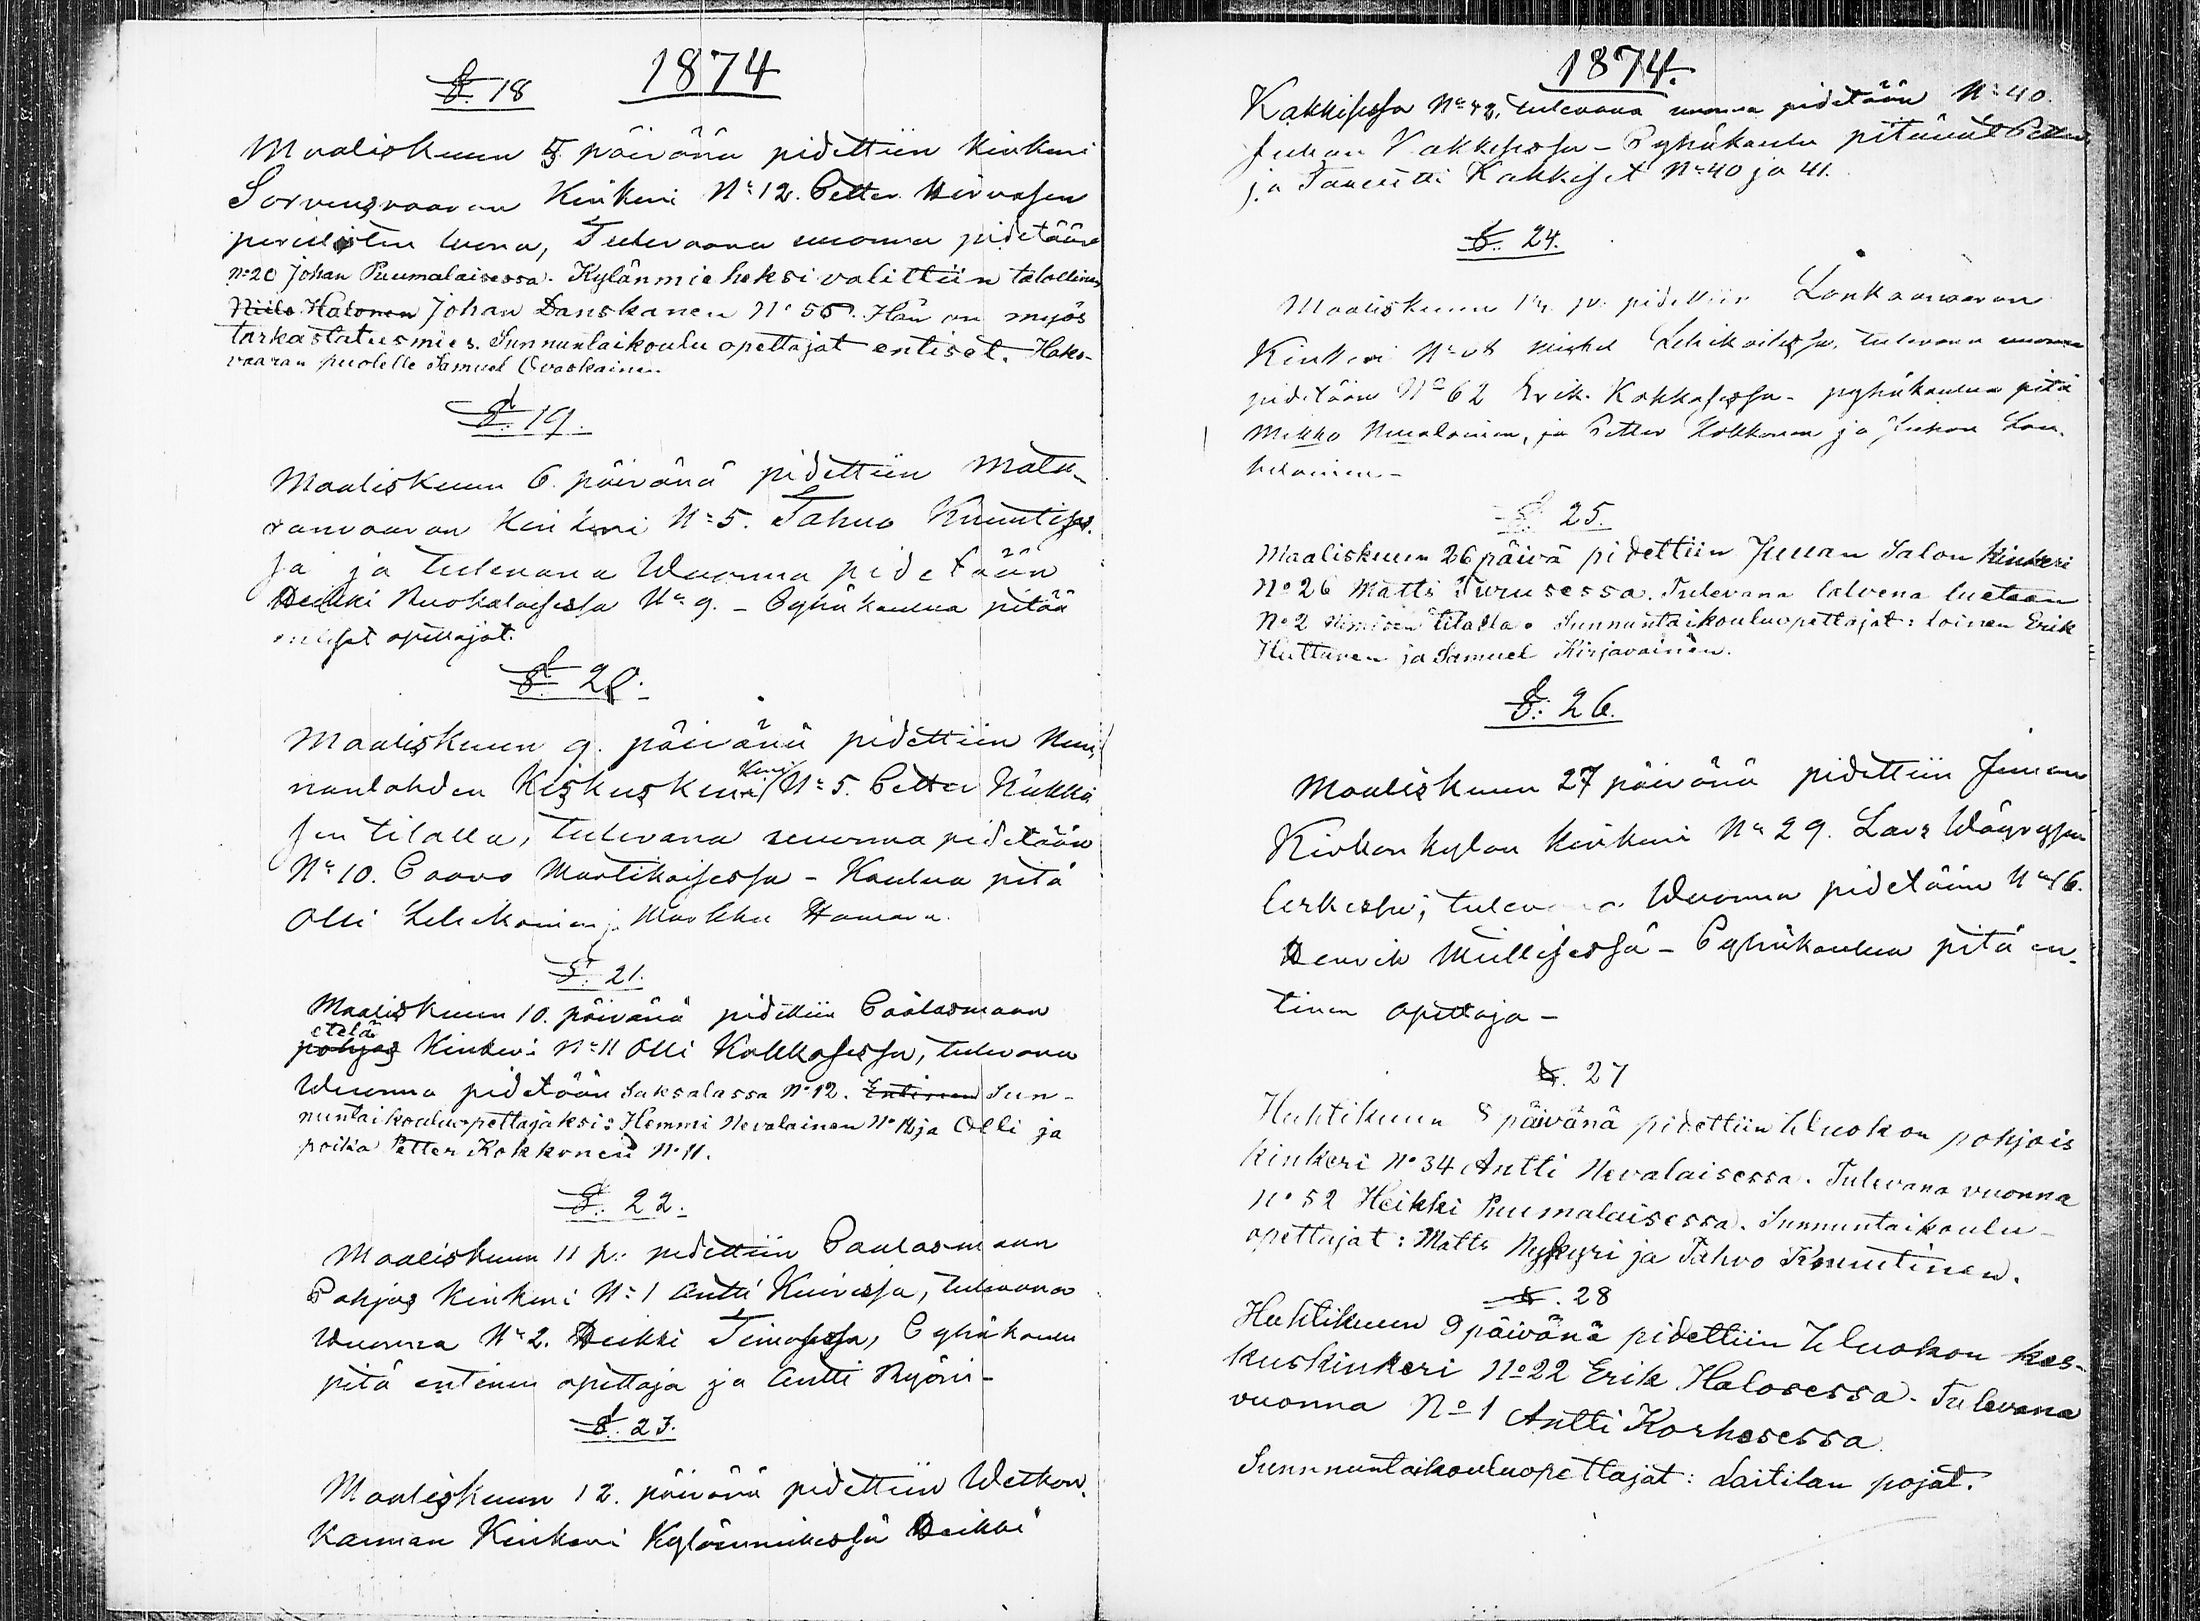 1874
§. 18
Maaliskuun 5 päivänä pidettiin kinkeri
Sorvensvaaran Kinkeri N:o 12. Petter Hirvosen
perillisten luona, Tulevana vuonna pidetään
No 20 Johan Puumalaisessa. Kylänmieheksi valittiin talollinen
Niilo Halonen Johan Danskanen No 56. Hän on myös
tarkastatusmies. Sunnuntaikoulu opettajat entiset. Hako-
vaaran puolelle Samuel Ovaskainen
§. 19.
Maaliskuun 6. päivänä pidettiin Mata-
ranvaaran Kinkeri N:o 5. Tahvo Knuutises-
sa ja tulevana Wuonna pidetään
Heikki Ruokolaisessa N:o 9. – Pyhäkoulua pitää
entiset opettajat.
§. 20.
Maaliskuun 9. päivänä pidettiin Nun-
nanlahden Keskuskinkeri N:o 5. Petter Nükki
sen tilalla, tulevana vuonna pidetään
N:o 10. Paavo Martikaisessa – Koulua pitä
Olli Lehikoinen ja Markku
§. 21.
Maaliskuun 10. päivänä pidettiin Paalasmaan
etelä
pohjas Kinkeri N:o 11 Olli Kokkosessa, tulevana
Wuonna pidetään Saksalassa No 12. Entinen Sun-
nuntaikouluopettajaksi: Hemmi Nevalainen No 12 ja Olli ja
poika Petter Kokkonen No 11.
§. 22.
Maaliskuun 11 p: pidettiin Paalasmaan
Pohjas kinkeri N:o 1 Antti Kuivissa, tulevana
Wuonna N:o 2. Heikki Timosessa, Pyhäkoulu
pitä entinen opettaja ja Antti Ryöni –
§. 23.
Maaliskuun 12. päivänä pidettiin Wetkon
kamman Kinkeri Kylänmiehessä Heikki
1874.
Kakkisessa N:o 42. tulevana vuonna pidetään N:o 40.
Juhan Kakkisessa – Pyhäkoulu pitävät Petter
ja Taneutti Kakkiset N:o 40 ja 41.
§. 24.
Maaliskuun pv. pidettiin Lonkanvaaran
Kinkeri N:o Mickel Lehikoisessa, tulevana vuonna
pidetään No 62 Erik. Kokkosessa – pyhäkoulua pitä
Mikko Nevalainen, ja Petter Kokkonen ja Juhan Lou-
helainen –
§. 25.
Maaliskuun 26 päivä pidettiin Juuan Salon Kinkeri
No 26 Matti Turusessa. Tulevana talvena luetaan
No 2 nimisen tilalla. Sunnuntaikouluopettajat: loinen Erik
Huttunen ja Samuel Kirjavainen.
§. 26.
Maaliskuun 27 päivänä pidettiin Juuan
Kirkonkylän kinkeri N:o 29. Lars Wäyrysen
leskessä, tulevana Wuonna pidetään N:o 46.
Henrik Müllisessä – Pyhäkoulua pitä en-
tinen opettaja –
§. 27
Huhtikuun 8 päivänä pidettiin Uluokon pohjois
kinkeri No 34 Antti Nevalaisessa. Tulevana vuonna
No 52 Heikki Puumalaisessa. Sunnuntaikoulu-
opettajat: Matti Nykyri ja Tahvo Knuutinen.
§. 28
Huhtikuun 9 päivänä pidettiin Uluokon kes-
kuskinkeri No 22 Erik Halosessa. Tulevana
vuonna No 1 Antti Korhosessa.
Sunnnuntaikouluopettajat: Laitilan pojat.